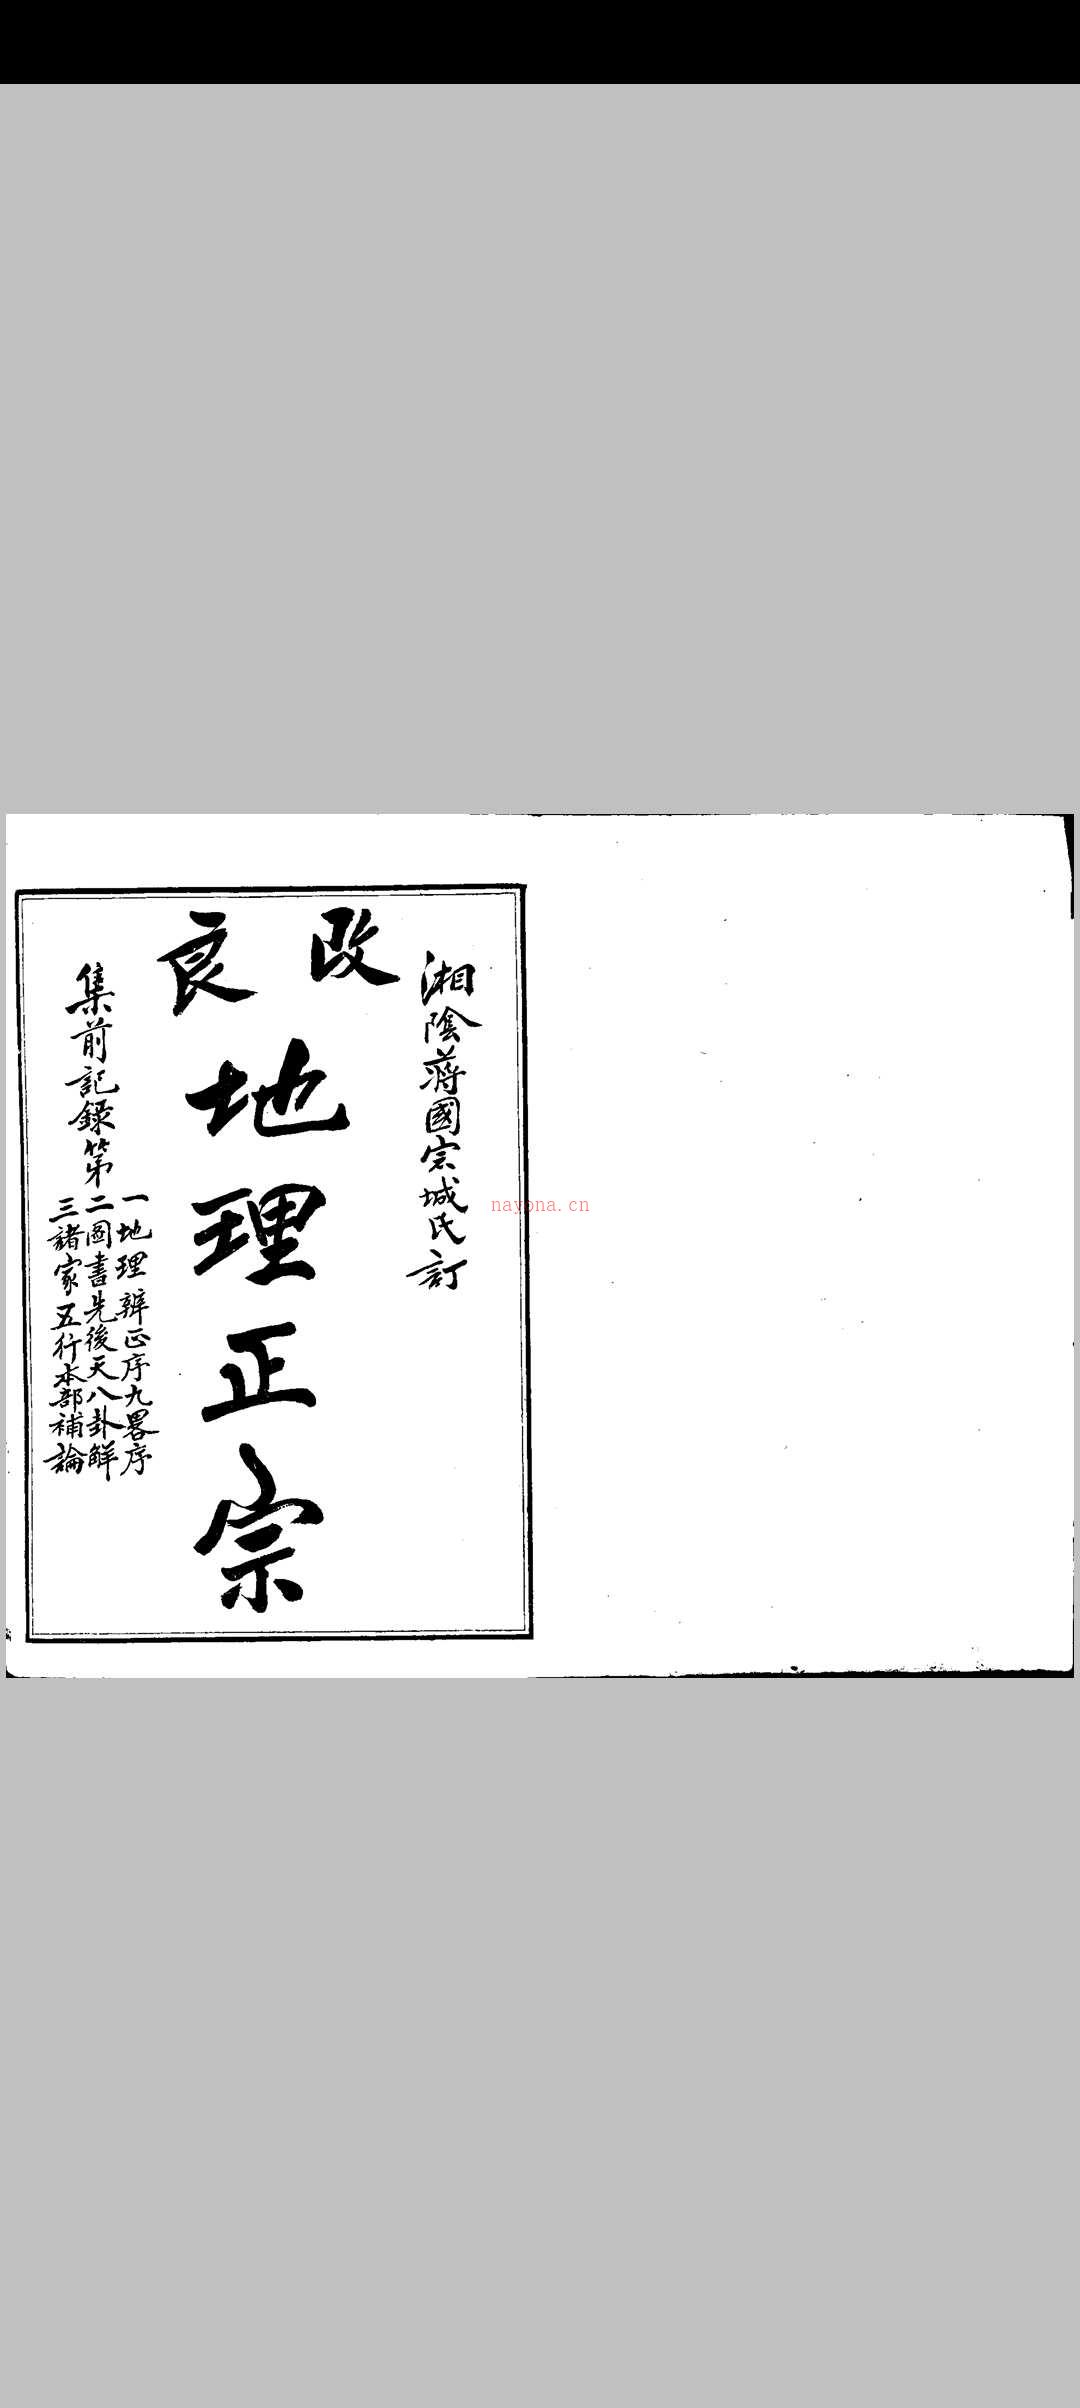 改良
湘陰蔣國宗城氏訂
地理正宗
集前記錄第
一地理辨正序九畧序
二圖書先後天八卦解
三諸家五行本部補論
nayona.cn